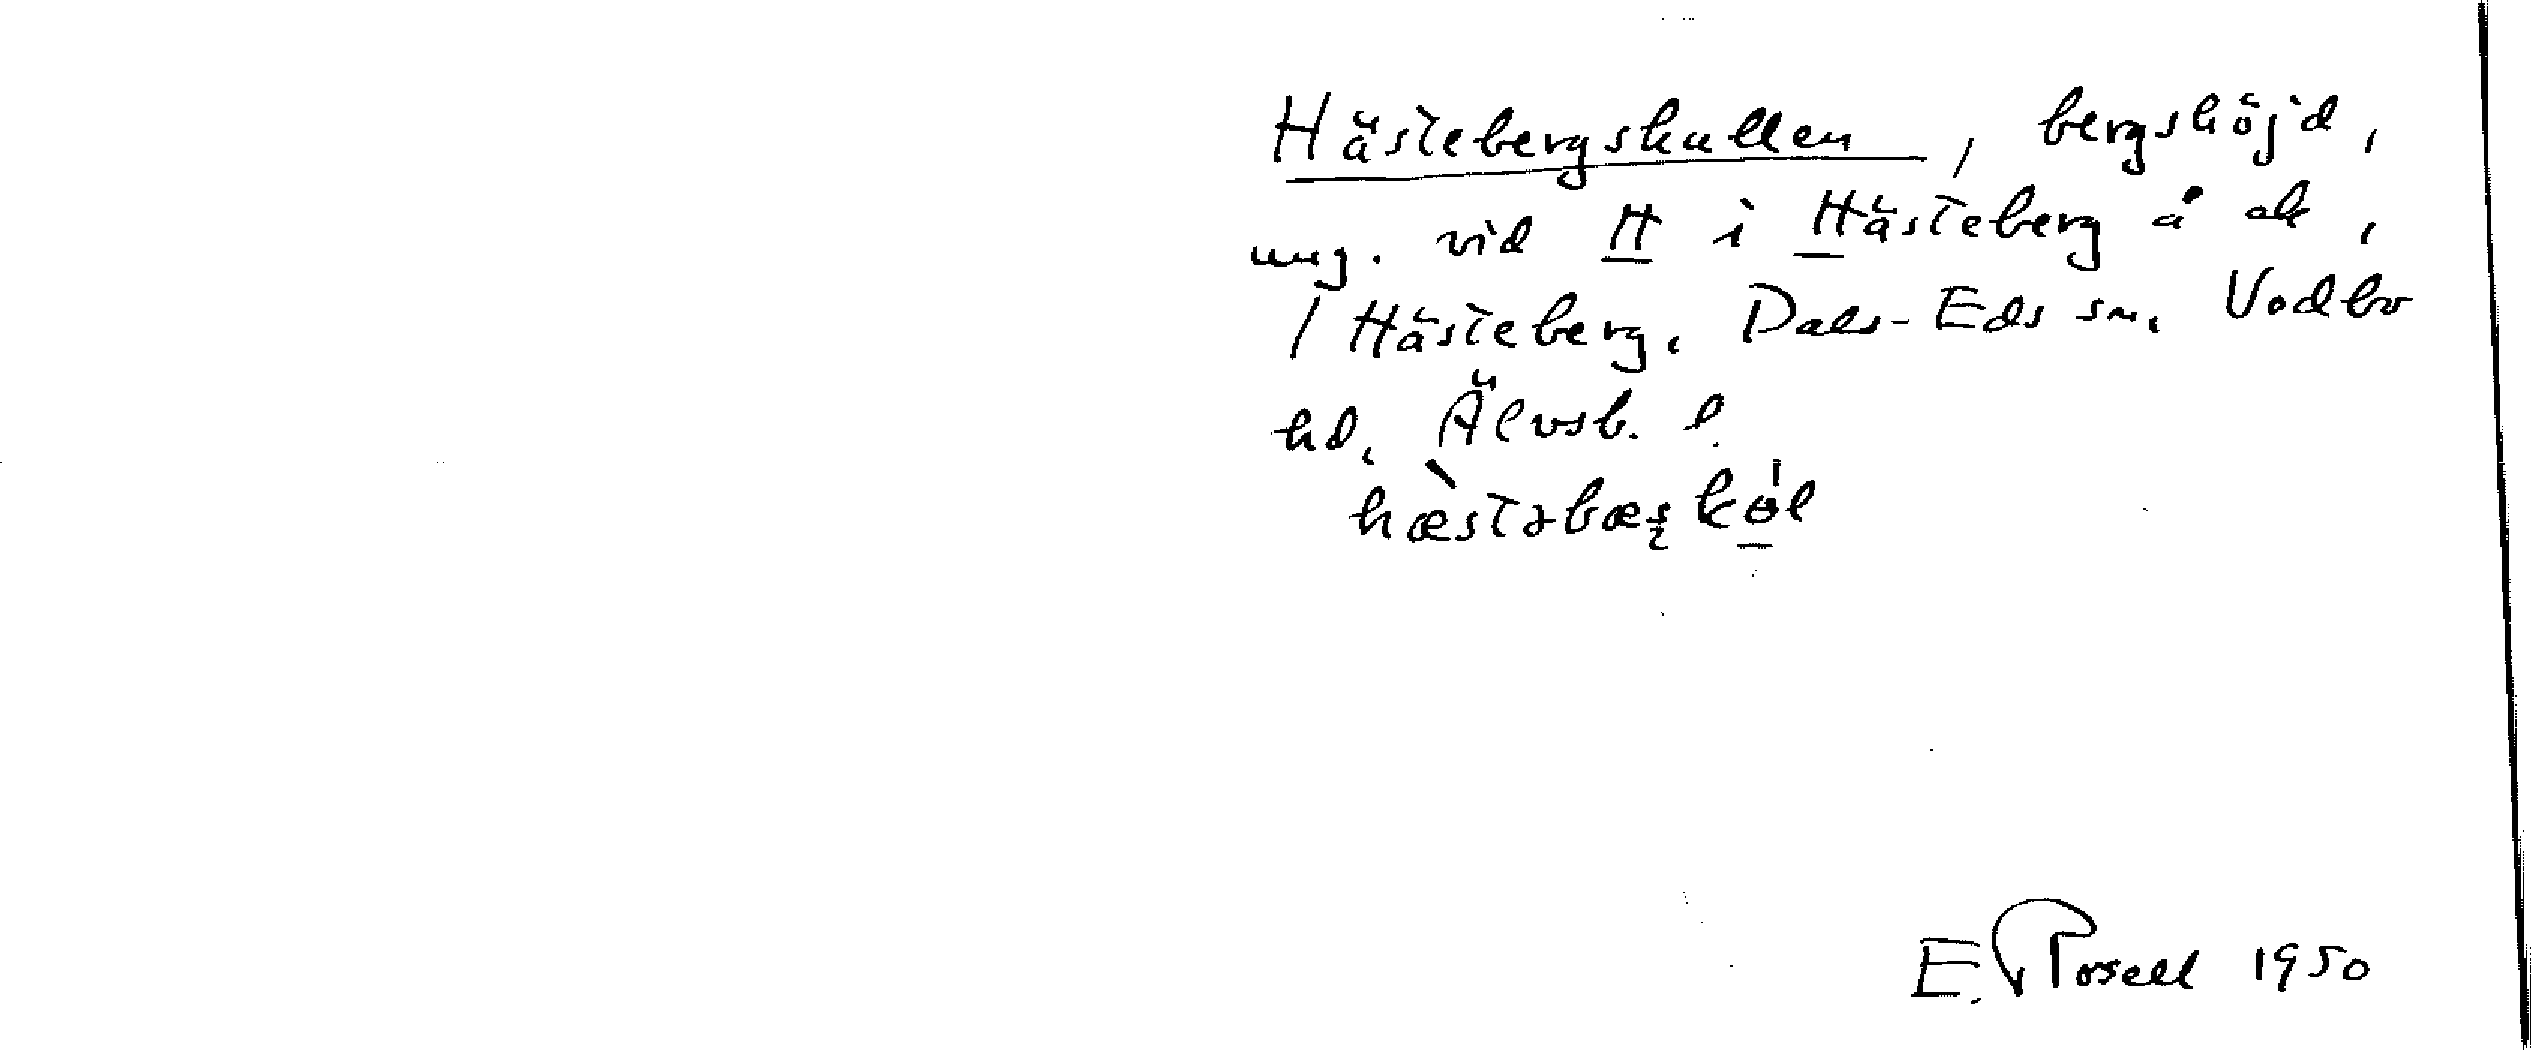 Hästebergskullen, bergshöjd,
ung. vid H i Hästeberg å ek,
/ Hästeberg. Dals-Eds sn. Vedbo
hd, Älvsb. l.
E. Rosell 1950